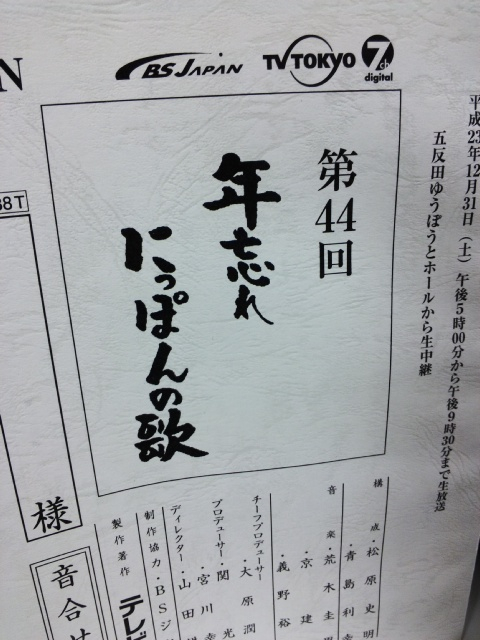 BS JAPAN
TV TOKYO
7ch
digital
平成23年12月31日（土）午後5時00分から午後9時30分まで生放送
五反田ゆうぽうとホールから生中継
第44回
年忘れ
にっぽんの歌
様
音合せ
構成・松原史明
・青島利幸
音楽・荒木圭男
・京建
・義野裕
チーフプロデューサー
・大原潤
プロデューサー・関光
・宮川幸
ディレクター・山田
制作協力・BSジ
製作著作 テレビ
N
68T